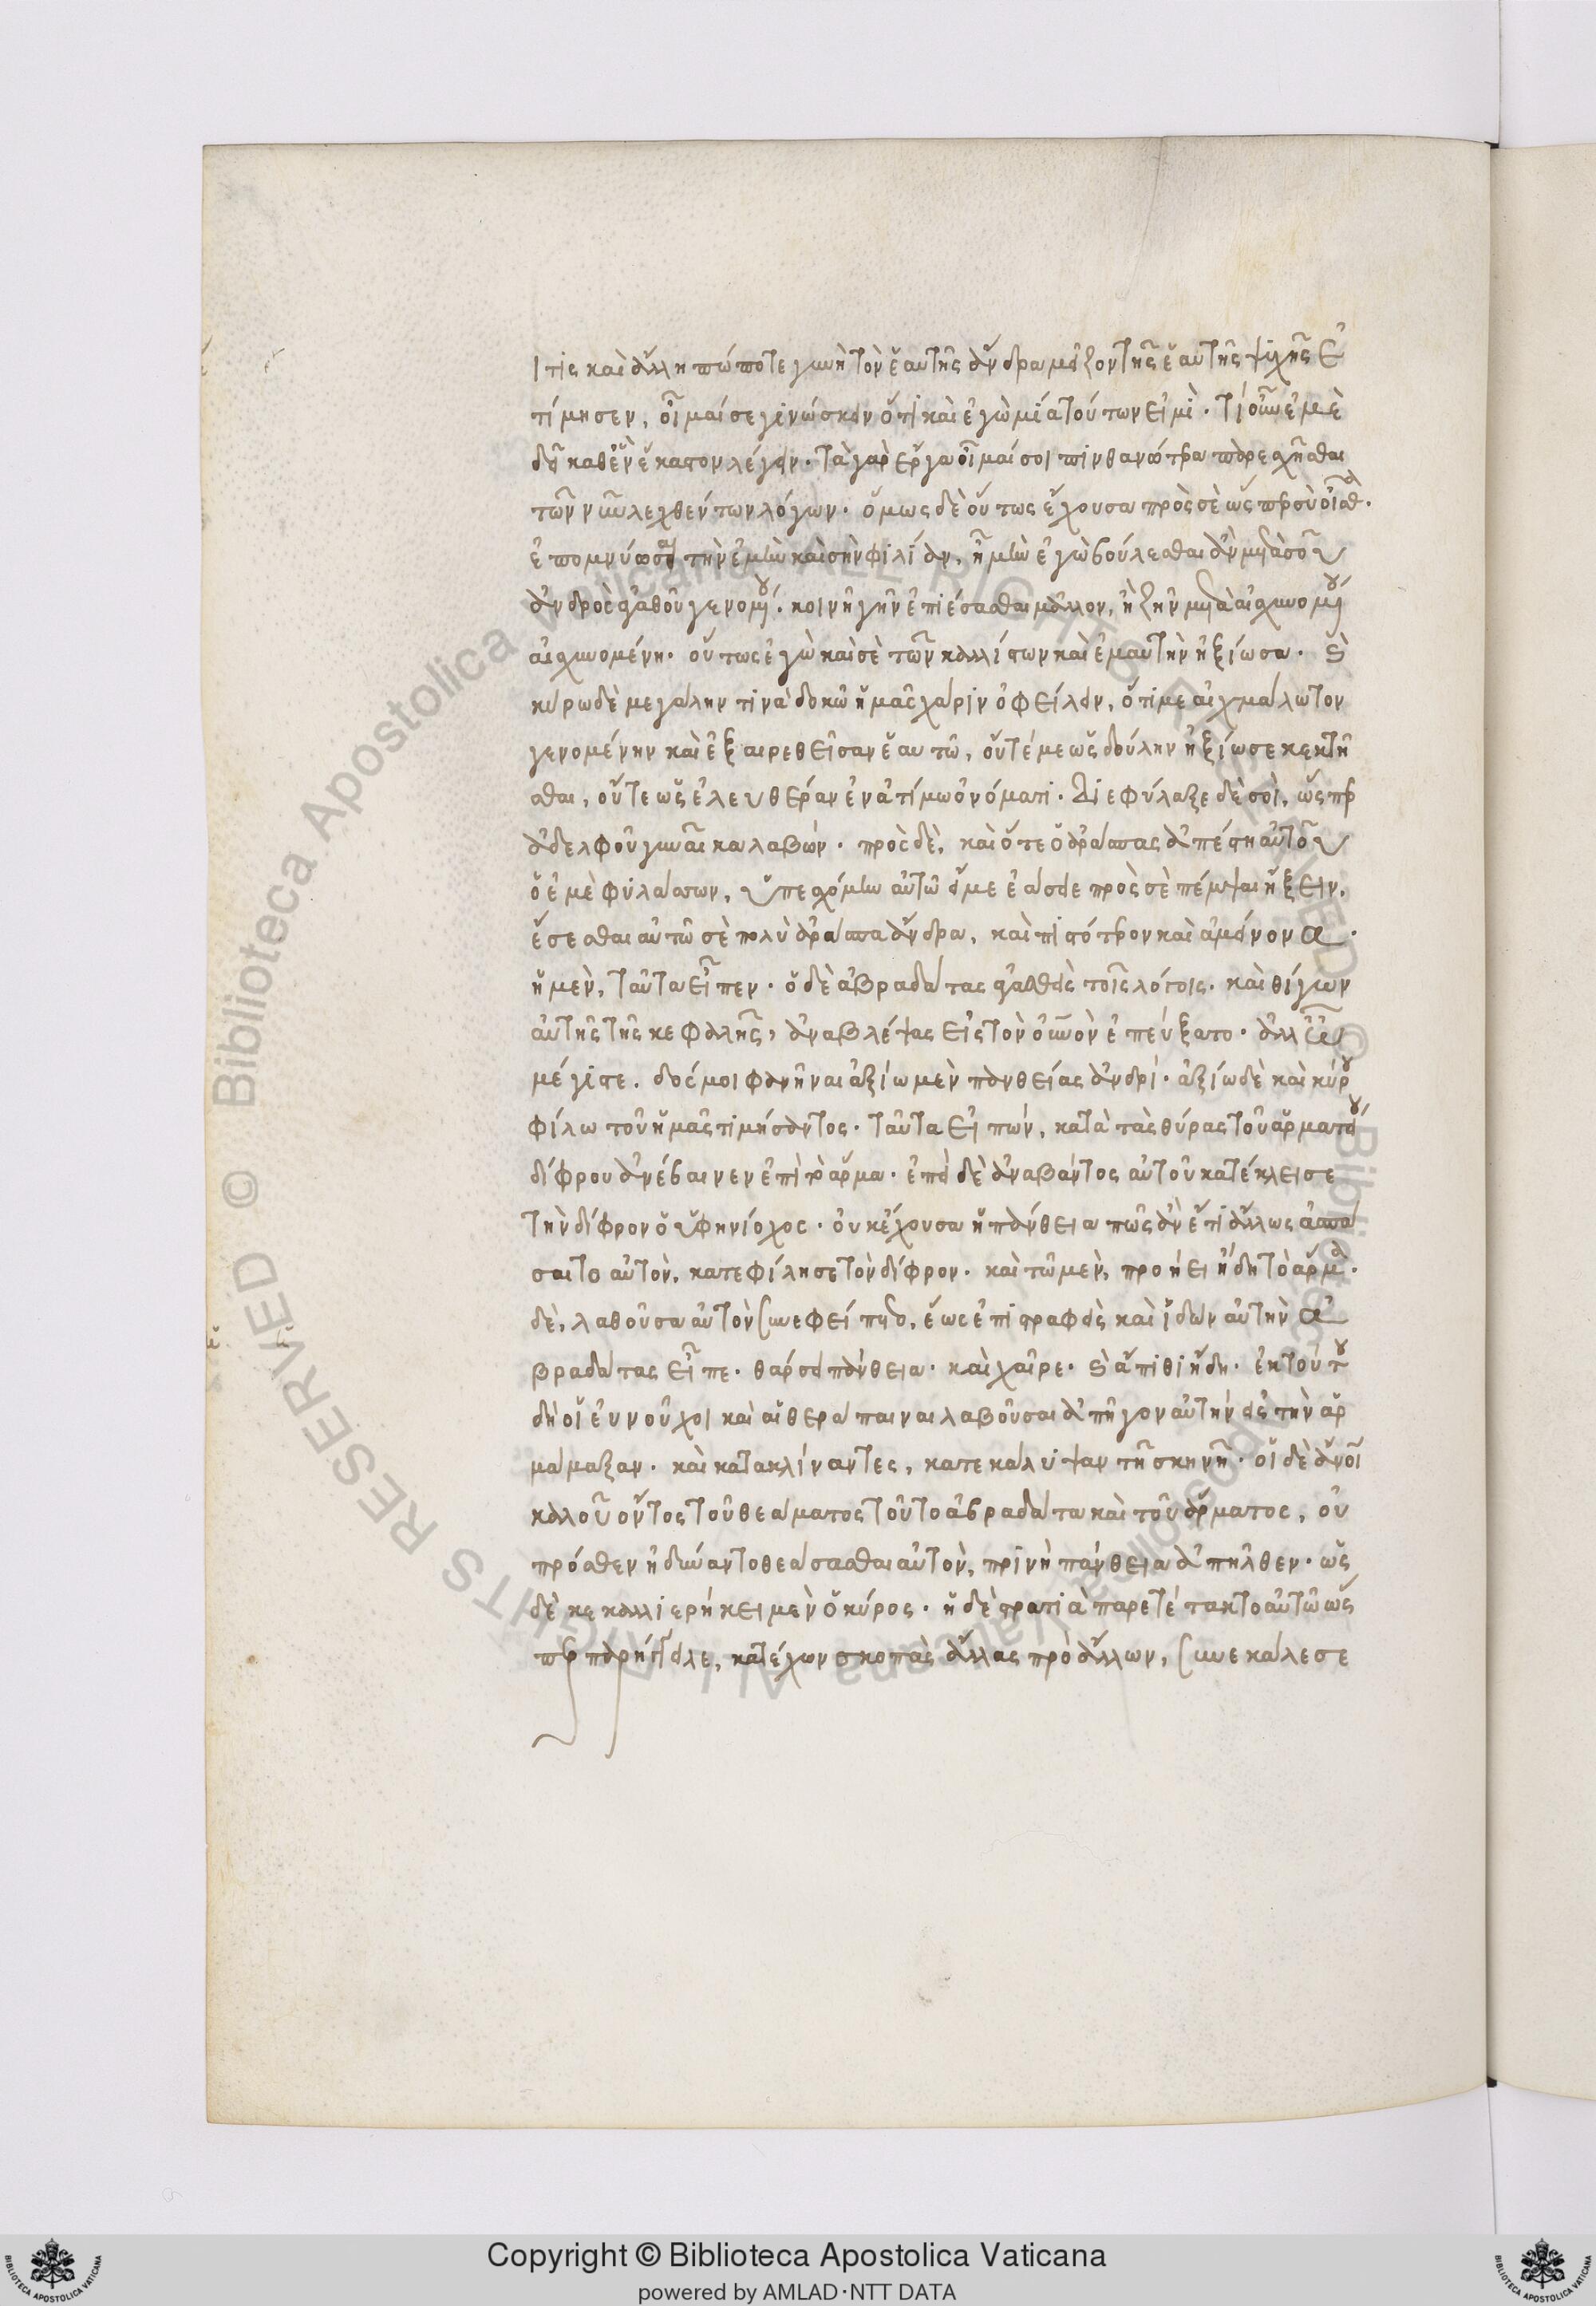 ι τις καὶ ἄλλη πώποτε γυνὴ τὸν ἑαυτῆς ἄνδρα μεῖζον τῆς ἑαυτῆς ψυχῆς ἐ
τίμησεν, οἶμαί σε γινώσκειν ὅτι καὶ ἐγὼ μία τούτων εἰμὶ. τί οὖν ἐμὲ
δεῖ καθ' ἓν ἕκαστον λέγειν. τὰ γὰρ ἔργα οἶμαί σοι πιθανώτερα παρεσχῆσθαι
τῶν νῦν λεχθέντων λόγων. ὅμως δὲ οὕτως ἔχουσα πρὸς σὲ ὥσπερ σὺ οἶσθα.
ἐπομνύω σοι τὴν ἐμὴν καὶ σὴν φιλίαν, ἦ μὴν ἐγὼ βούλεσθαι ἂν μετὰ σοῦ
ἀνδρὸς ἀγαθοῦ γενομένου. κοινῇ γῆν ἐπιέσασθαι μᾶλλον, ἢ ζῆν μετὰ αἰσχυνομένου
αἰσχυνομένη. οὕτως ἐγὼ καὶ σὲ τῶν καλλίστων καὶ ἐμαυτὴν ἠξίωσα. καὶ
κύρω δὲ μεγάλην τινὰ δοκῶ ἡμᾶς χάριν ὀφείλειν, ὅτι με αἰχμάλωτον
γενομένην καὶ ἐξαιρεθεῖσαν ἑαυτῶ, οὔτέ με ὡς δούλην ἠξίωσε κεκτῆ
σθαι, οὔτε ὡς ἐλευθέραν ἐν ἀτίμω ὀνόματι. διεφύλαξε δὲ σοὶ, ὥσπερ
ἀδελφοῦ γυναῖκα λαβών. πρὸς δὲ, καὶ ὅτε ὁ ἀράσπας ἀπέστη αὐτοῦ
ὁ ἐμὲ φυλάττων, ὑπεσχόμην αὐτῶ εἴ με ἐάσειε πρὸς σὲ πέμψαι ἥξειν,
ἔσεσθαι αὐτῶ σὲ πολὺ ἀράσπα ἄνδρα, καὶ πιστότερον καὶ ἀμείνονα.
ἡ μὲν, ταῦτα εἶπεν. ὁ δὲ ἀβραδάτας ἀγασθεὶς τοῖς λόγοις. καὶ θίγων
αὐτῆς τῆς κεφαλῆς, ἀναβλέψας εἰς τὸν οὐρανὸν ἐπεύξατο. ἀλλ' ὦ ζεῦ
μέγιστε. δός μοι φανῆναι ἀξίω μὲν πανθείας ἀνδρί. ἀξίω δὲ καὶ κύρου
φίλω τοῦ ἡμᾶς τιμήσαντος. ταῦτα εἰπών, κατὰ τὰς θύρας τοῦ ἁρματείου
δίφρου ἀνέβαινεν ἐπὶ τὸ ἅρμα. ἐπεὶ δὲ ἀναβάντος αὐτοῦ κατέκλεισε
τὴν δίφρον ὁ ὑφηνίοχος. οὐκ ἔχουσα ἡ πάνθεια πῶς ἂν ἔτι ἄλλως ἀσπά
σαιτο αὐτὸν, κατεφίλησε τὸν δίφρον. καὶ τῶ μὲν, προήει ἤδη τὸ ἅρμα.
δὲ, λαθοῦσα αὐτὸν συνεφείπετο, ἕως ἐπιστραφεὶς καὶ ἰδὼν αὐτὴν ἀ
βραδάτας εἶπε. θάρσει πάνθεια. καὶ χαῖρε. καὶ ἄπιθι ἤδη. ἐκ τούτου
δὴ οἱ εὐνοῦχοι καὶ αἱ θεράπαιναι λαβοῦσαι ἀπῆγον αὐτήν εἰς τὴν ἁρ
μάμαξαν. καὶ κατακλίναντες, κατεκάλυψαν τῆ σκηνῆ. οἱ δὲ ἄνθρωποι
καλοῦ ὄντος τοῦ θεάματος τοῦ τὸ ἀβραδάτα καὶ τοῦ ἅρματος, οὐ
πρόσθεν ἠδύναντο θεάσασθαι αὐτὸν, πρὶν ἡ πάνθεια ἀπῆλθεν. ὡς
δὲ κεκαλλιερήκει μὲν ὁ κύρος. ἡ δὲ στρατιὰ παρετέτακτο αὐτῶ ὥς
περ παρήγγειλε, κατέχων σκοπὰς ἄλλας πρὸ ἄλλων, συνεκάλεσε
Copyright © Biblioteca Apostolica Vaticana
powered by AMLAD·NTT DATA